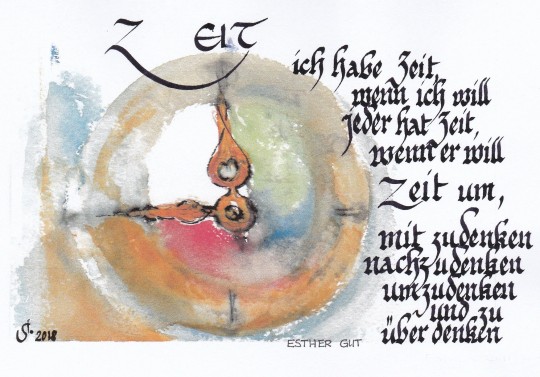 ZEIT
ich habe Zeit,
wenn ich will
jeder hat Zeit,
wenn er will
Zeit um,
mit zu denken
nach zu denken
um zu denken
und zu
über denken
2018
ESTHER GUT